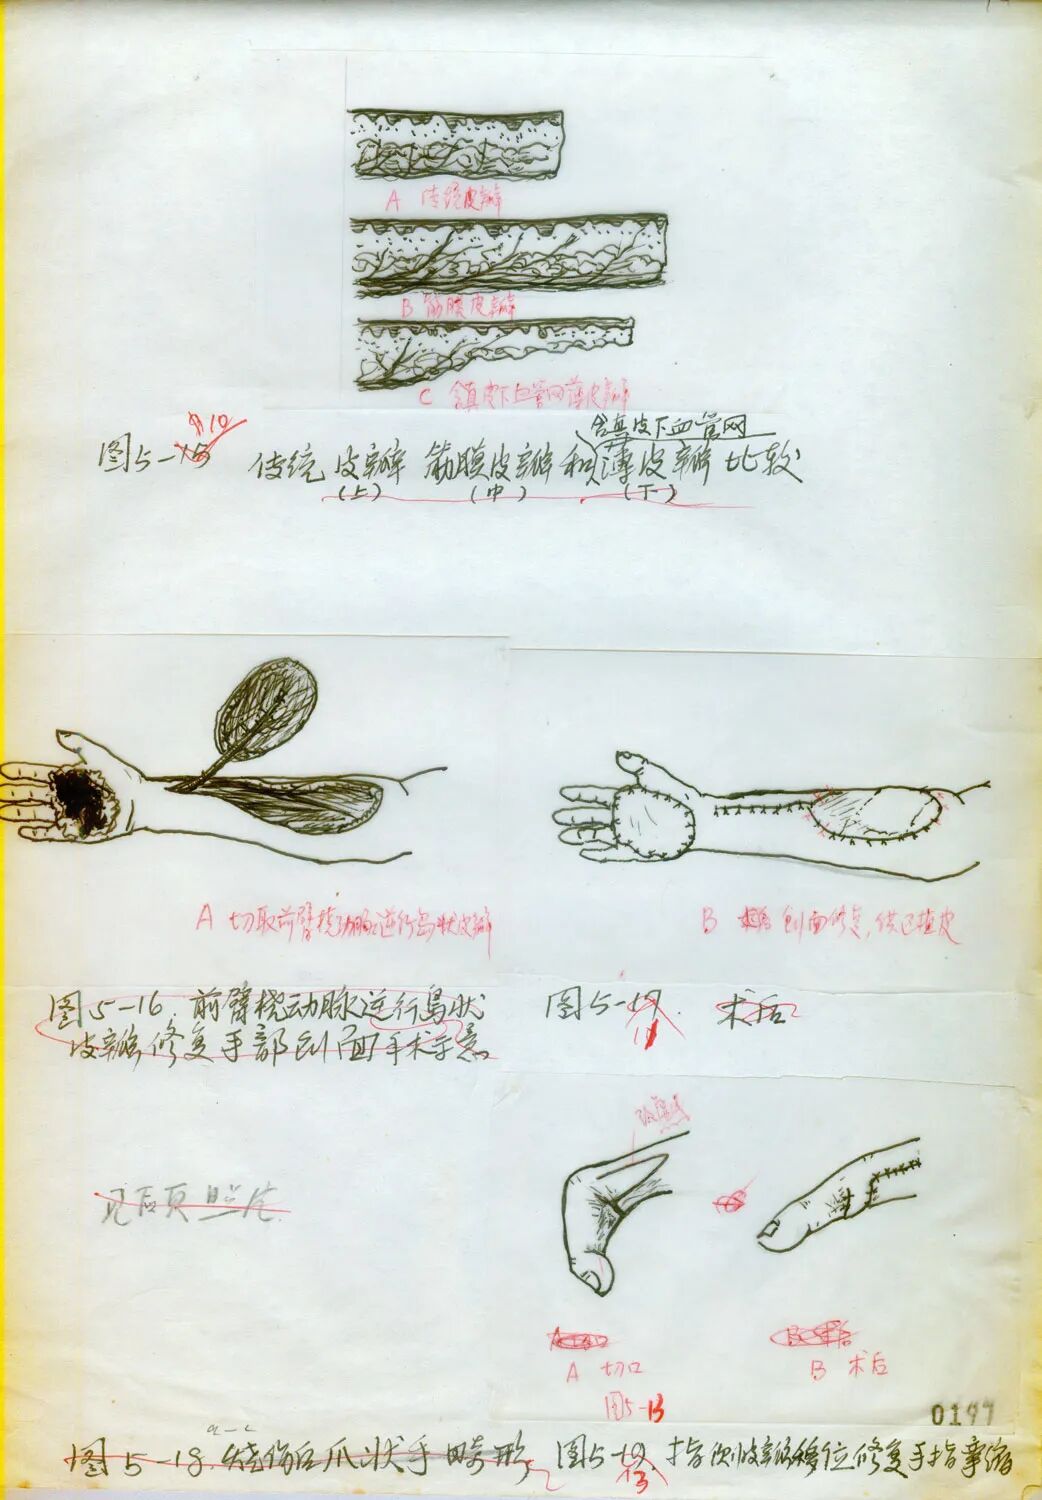 A 传统皮瓣
B 筋膜皮瓣
C 含真皮下血管网薄皮瓣
含真皮下血管网
10
图5-15 传统皮瓣 筋膜皮瓣和薄皮瓣比较
(上) (中) (下)
A 切取前臂桡动脉逆行岛状皮瓣
B 术后 创面修复,供区植皮
图5-16. 前臂桡动脉逆行岛状
皮瓣修复手部创面手术示意
图5-17. 术后
11
见后页照片
A 切口
B 术后
A 切口 B 术后
图5-13
0197
a-c
图5-18. 烧伤后爪状手畸形
图5-19. 指侧皮瓣移位修复手指挛缩
13